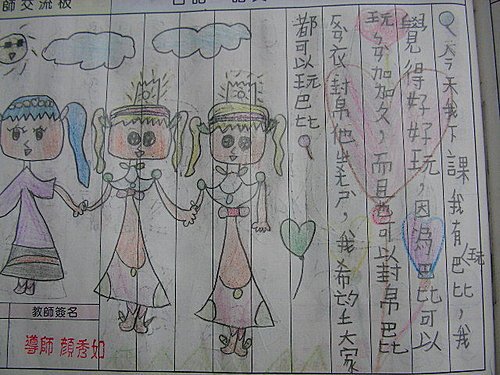 師交流板
今天我下課我有玩巴比，我
覺得好好玩，因為巴比可以
玩加加久，而且也可以幫巴比
衣幫他，我希望大家
都可以玩巴比。
教師簽名
導師 顏秀如